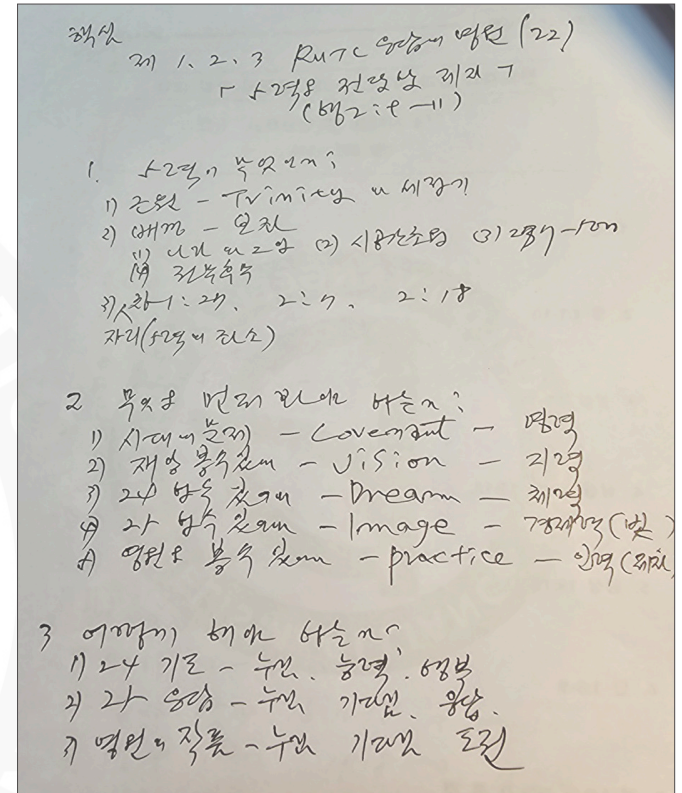 핵심
제 1. 2. 3 RUTC 응답의 영원 (22)
「5력을 전달할 제자」
(행2:9-11)
1. 5력이 무엇인가?
1) 근원 - Trinity의 세 장기
2) 배경 - 보좌
(1) 나라의 그 일 (2) 시공간초월 (3) 237
(4) 전무후무
3) 창1:27, 2:7, 2:18
자리(5력의 장소)
2 무엇을 먼저 봐야 하는가?
1) 시대의 문제 - Covenant - 영력
2) 재앙 볼 수 있어야 - Vision - 지력
3) 24 할 수 있어야 - Dream - 체력
4) 25 할 수 있어야 - Image - 경제력 (빛)
5) 영원을 볼 수 있어야 - practice - 인력
3 어떻게 해야 하는가?
1) 24 기도 - 누림, 능력, 행복
2) 25 응답 - 누림 기다림, 응답.
3) 영원의 작품 - 누림 기다림 도전